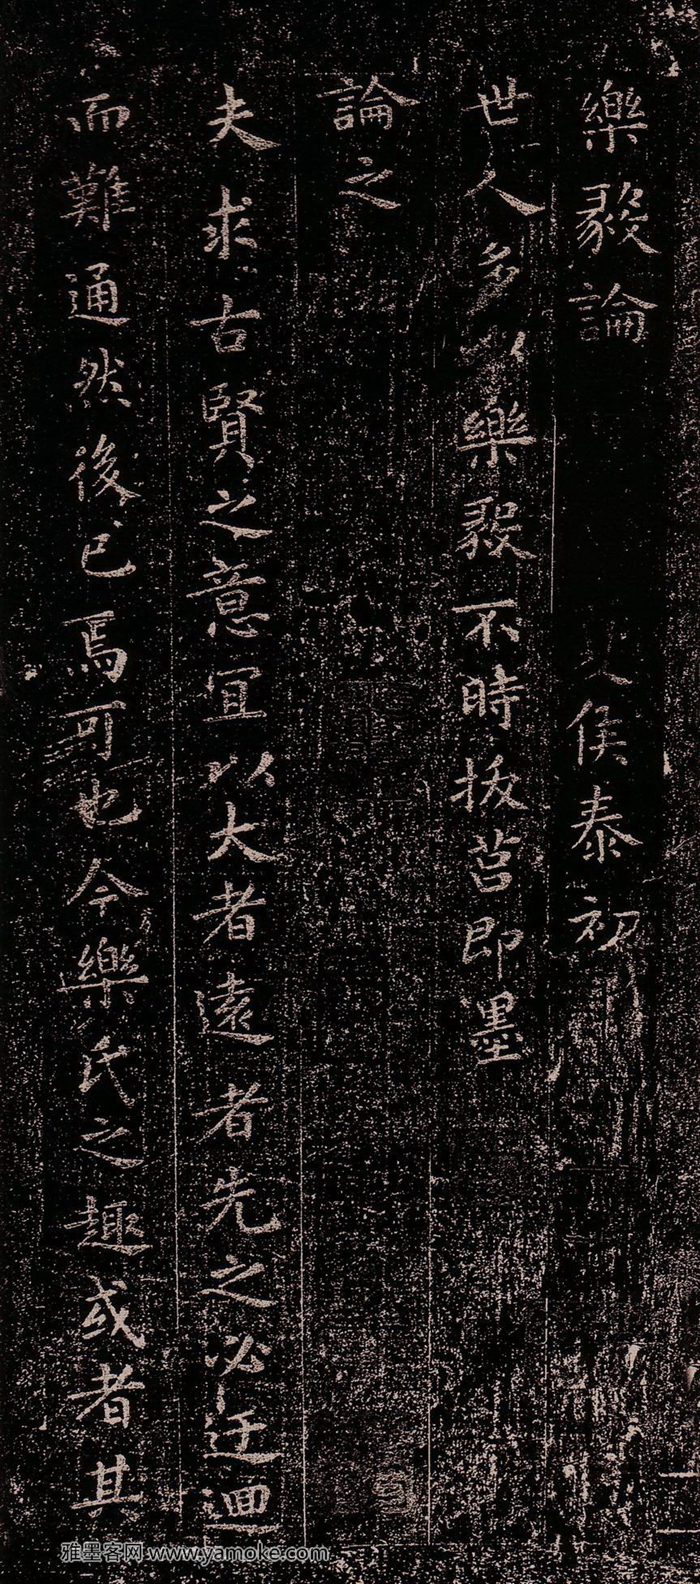 樂毅論 夏侯泰初
世人多以樂毅不時拔莒即墨
論之
夫求古賢之意宜以大者遠者先之必迂迴
而難通然後已焉可也今樂氏之趣或者其
雅墨客网 www.yamoke.com